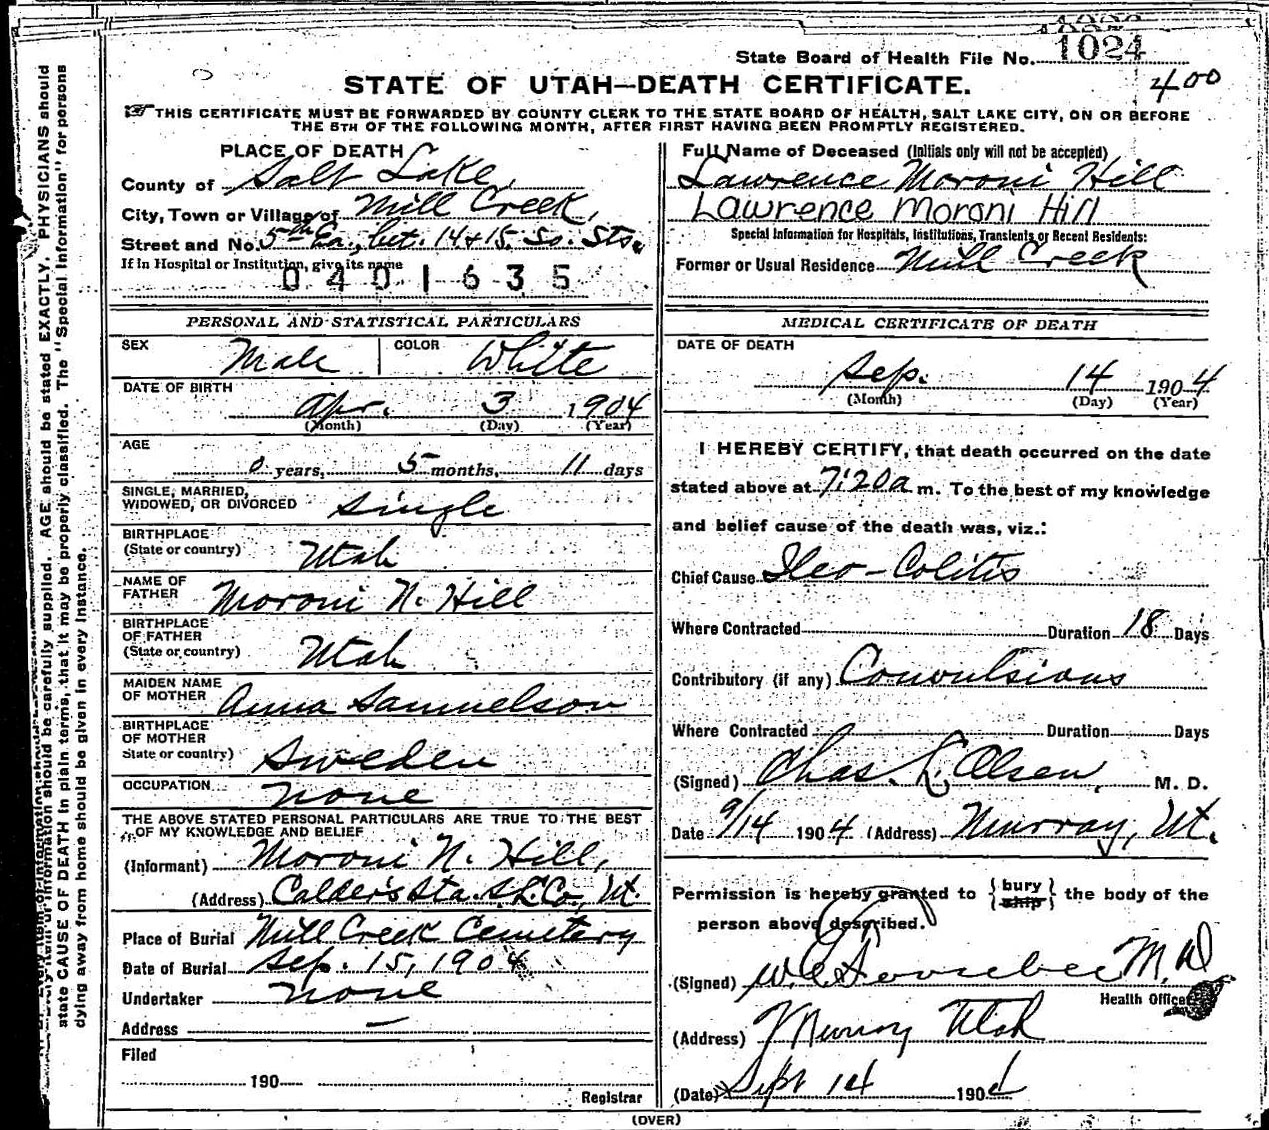 State Board of Health File No. 1024
400
STATE OF UTAH—DEATH CERTIFICATE.
THIS CERTIFICATE MUST BE FORWARDED BY COUNTY CLERK TO THE STATE BOARD OF HEALTH, SALT LAKE CITY, ON OR BEFORE
THE 5TH OF THE FOLLOWING MONTH, AFTER FIRST HAVING BEEN PROMPTLY REGISTERED.
state CAUSE OF DEATH in plain terms, that it may be properly classified. The "Special Information" for persons
dying away from home should be given in every instance.
information should be carefully supplied. AGE should be stated EXACTLY. PHYSICIANS should
PLACE OF DEATH
County of Salt Lake,
City, Town or Village of Mill Creek,
Street and No. 5th Ea., bet. 14 & 15. So. Sts.
If in Hospital or Institution, give its name
0401635
PERSONAL AND STATISTICAL PARTICULARS
SEX Male COLOR White
DATE OF BIRTH
Apr. 3 1904
(Month) (Day) (Year)
AGE
0 years, 5 months, 11 days
SINGLE, MARRIED,
WIDOWED, OR DIVORCED Single
BIRTHPLACE
(State or country) Utah
NAME OF
FATHER Moroni N. Hill
BIRTHPLACE
OF FATHER
(State or country) Utah
MAIDEN NAME
OF MOTHER Anna Samuelson
BIRTHPLACE
OF MOTHER
State or country) Sweden
OCCUPATION none
THE ABOVE STATED PERSONAL PARTICULARS ARE TRUE TO THE BEST
OF MY KNOWLEDGE AND BELIEF
(Informant) Moroni N. Hill,
(Address) Calder's Sta. S.L. Co., Ut.
Place of Burial Mill Creek Cemetery
Date of Burial Sep. 15, 1904
Undertaker none
Address —
Filed
190
Registrar
Full Name of Deceased (Initials only will not be accepted)
Lawrence Moroni Hill
Lawrence Moroni Hill
Special Information for Hospitals, Institutions, Transients or Recent Residents:
Former or Usual Residence Mill Creek
MEDICAL CERTIFICATE OF DEATH
DATE OF DEATH
Sep. 14 1904
(Month) (Day) (Year)
I HEREBY CERTIFY, that death occurred on the date
stated above at 7:20 a m. To the best of my knowledge
and belief cause of the death was, viz.:
Chief Cause Ileo-Colitis
Where Contracted Duration 18 Days
Contributory (if any) Convulsions
Where Contracted Duration Days
(Signed) Chas. L. Olsen, M. D.
Date 9/14 1904 (Address) Murray, Ut.
Permission is hereby granted to {bury
ship} the body of the
person above described.
(Signed) M.D
Health Officer
(Address) Murray Utah
(Date) Sept 14 1904
(OVER)